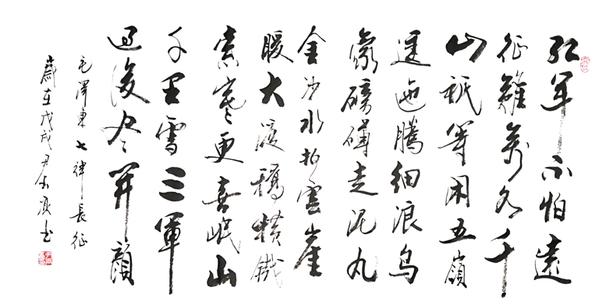 紅軍不怕遠
征難萬水千
山祇等閑五嶺
逶迤騰細浪烏
蒙磅礴走泥丸
金沙水拍雲崖
暖大渡橋横鐵
索寒更喜岷山
千里雪三軍
過後尽開顔
毛澤東七律長征
歲在戊戌尹书